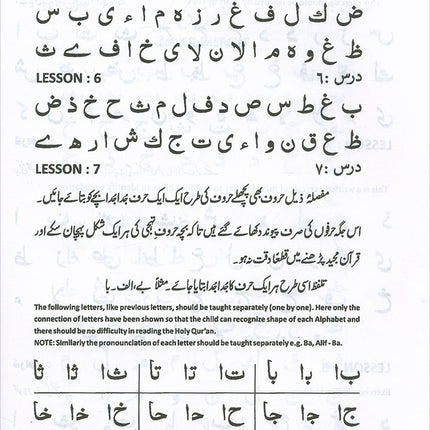 ض ك ل ف غ ر ز ه م ا ء ى ب س
ظ غ و ه م الا ن لا ى خ ا ف ے ث
LESSON : 6 درس :٦
ب غ ط س ص د ف ل م ش ح خ ذ ض
ظ ع ق ن و ا ء ى ت ج ك ش ا ر ه ے
LESSON : 7 درس :٧
مفصلۂ ذیل حروف بھی پچھلے حروف کی طرح ایک ایک حرف جدا جدا بچے کو بتائے جائیں۔
اس جگہ حرفوں کی صرف پیوند دکھائے گئے ہیں تاکہ بچہ حروف تہجی کی ہر ایک شکل پہچان سکے اور
قرآن مجید پڑھنے میں قطعاً دقت نہ ہو۔
تلفظ اسی طرح ہر ایک حرف کا جدا جدا بتایا جائے۔ مثلاً بے، الف۔ با
The following letters, like previous letters, should be taught separately (one by one). Here only the
connection of letters have been shown so that the child can recognize shape of each Alphabet and
there should be no difficulty in reading the Holy Qur'an.
NOTE: Similarly the pronounciation of each letter should be taught separately e.g. Ba, Alif - Ba.
ب ا با با ت ا تا تا ث ا ثا ثا
ج ا جا جا ح ا حا حا خ ا خا خا